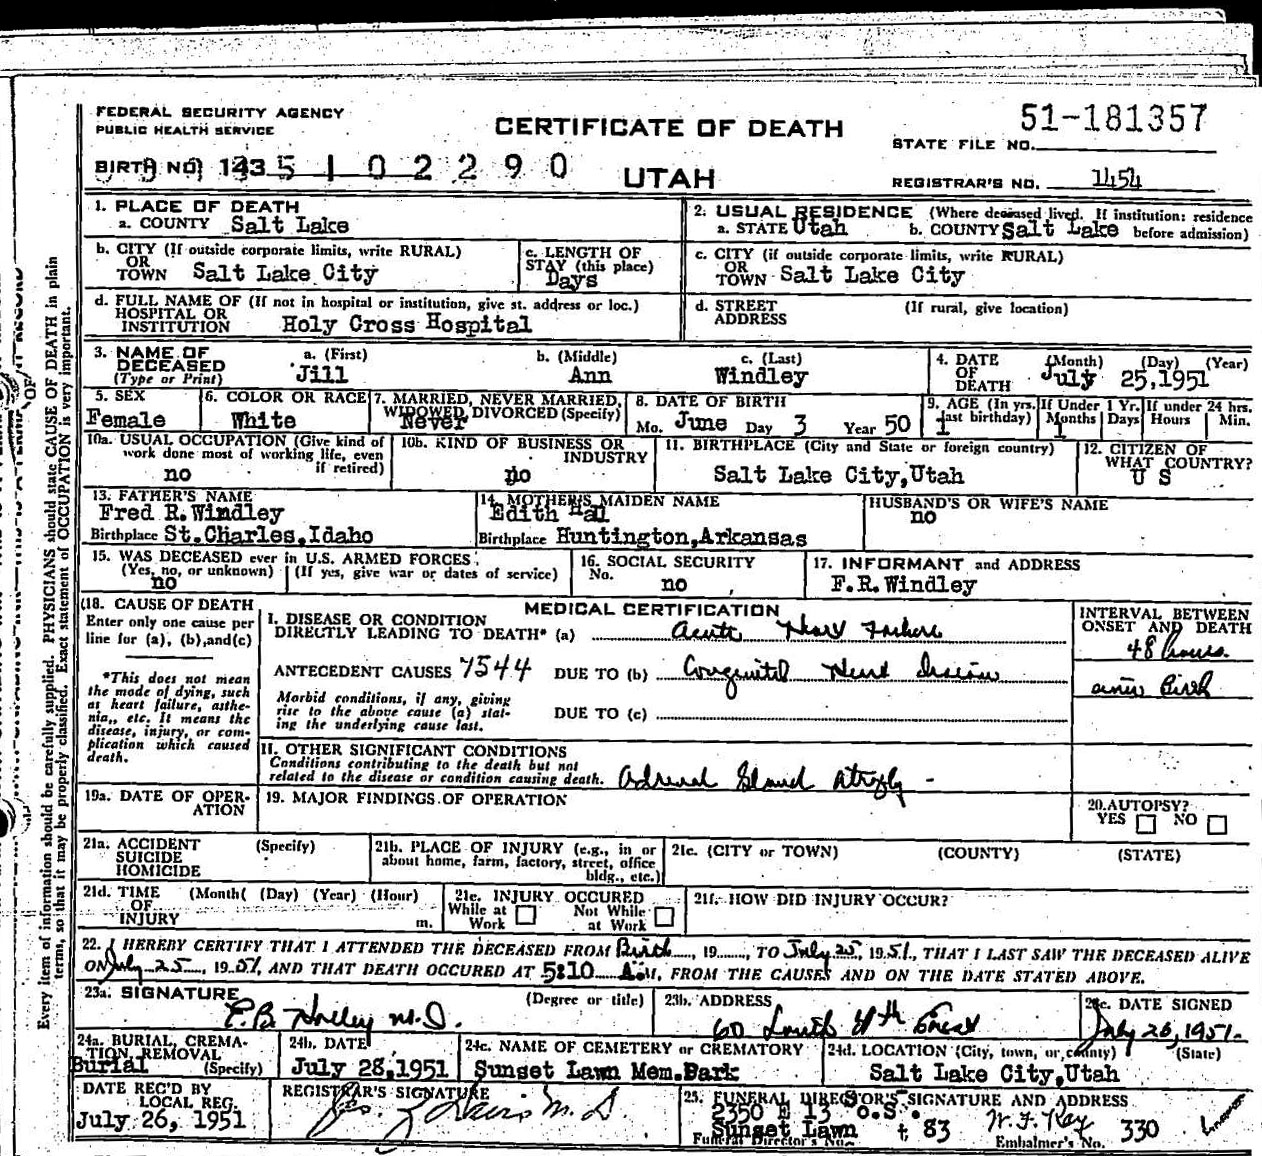 FEDERAL SECURITY AGENCY
PUBLIC HEALTH SERVICE
CERTIFICATE OF DEATH
51-181357
STATE FILE NO.
BIRTH NO. 143 5 1 0 2 2 9 0
UTAH
REGISTRAR'S NO. 1454
1. PLACE OF DEATH
a. COUNTY Salt Lake
2. USUAL RESIDENCE (Where deceased lived. If institution: residence before admission)
a. STATE Utah b. COUNTY Salt Lake
b. CITY (If outside corporate limits, write RURAL)
OR
TOWN Salt Lake City
c. LENGTH OF
STAY (this place)
Days
c. CITY (if outside corporate limits, write RURAL)
OR
TOWN Salt Lake City
d. FULL NAME OF (If not in hospital or institution, give st. address or loc.)
HOSPITAL OR
INSTITUTION Holy Cross Hospital
d. STREET (If rural, give location)
ADDRESS
3. NAME OF
DECEASED
(Type or Print)
a. (First) b. (Middle) c. (Last)
Jill Ann Windley
4. DATE
OF
DEATH
(Month) (Day) (Year)
July 25,1951
5. SEX
Female
6. COLOR OR RACE
White
7. MARRIED, NEVER MARRIED,
WIDOWED, DIVORCED (Specify)
Never
8. DATE OF BIRTH
Mo. June Day 3 Year 50
9. AGE (In yrs.
last birthday)
1
If Under 1 Yr.
Months Days
1
If under 24 hrs.
Hours Min.
10a. USUAL OCCUPATION (Give kind of
work done most of working life, even
if retired)
no
10b. KIND OF BUSINESS OR
INDUSTRY
no
11. BIRTHPLACE (City and State or foreign country)
Salt Lake City,Utah
12. CITIZEN OF
WHAT COUNTRY?
U S
13. FATHER'S NAME
Fred R.Windley
Birthplace St.Charles,Idaho
14. MOTHER'S MAIDEN NAME
Edith Hal
Birthplace Huntington,Arkansas
HUSBAND'S OR WIFE'S NAME
no
15. WAS DECEASED ever in U.S. ARMED FORCES
(Yes, no, or unknown) (If yes, give war or dates of service)
no
16. SOCIAL SECURITY
No. no
17. INFORMANT and ADDRESS
F.R.Windley
18. CAUSE OF DEATH
Enter only one cause per
line for (a), (b), and (c)
*This does not mean
the mode of dying, such
as heart failure, asthe-
nia,, etc. It means the
disease, injury, or com-
plication which caused
death.
MEDICAL CERTIFICATION
I. DISEASE OR CONDITION
DIRECTLY LEADING TO DEATH* (a) Acute Heart Failure
ANTECEDENT CAUSES 7544 DUE TO (b) Congenital Heart Disease
Morbid conditions, if any, giving
rise to the above cause (a) stat-
ing the underlying cause last.
DUE TO (c)
INTERVAL BETWEEN
ONSET AND DEATH
48 hours.
since Birth
II. OTHER SIGNIFICANT CONDITIONS
Conditions contributing to the death but not
related to the disease or condition causing death. Adrenal Gland Atrophy -
19a. DATE OF OPER-
ATION
19. MAJOR FINDINGS OF OPERATION
20. AUTOPSY?
YES NO
21a. ACCIDENT (Specify)
SUICIDE
HOMICIDE
21b. PLACE OF INJURY (e.g., in or
about home, farm, factory, street, office
bldg., etc.)
21c. (CITY or TOWN) (COUNTY) (STATE)
21d. TIME (Month( (Day) (Year) (Hour)
OF
INJURY m.
21e. INJURY OCCURED
While at Work Not While at Work
21f. HOW DID INJURY OCCUR?
22. I HEREBY CERTIFY THAT I ATTENDED THE DECEASED FROM Birth, 19......, TO July 25, 1951, THAT I LAST SAW THE DECEASED ALIVE
ON July 25, 1951, AND THAT DEATH OCCURED AT 5:10 A.M, FROM THE CAUSES AND ON THE DATE STATED ABOVE.
23a. SIGNATURE (Degree or title)
M.D.
23b. ADDRESS
60 South 4th East
23c. DATE SIGNED
July 26, 1951.
24a. BURIAL, CREMA-
TION, REMOVAL
Burial (Specify)
24b. DATE
July 28,1951
24c. NAME OF CEMETERY or CREMATORY
Sunset Lawn Mem.Park
24d. LOCATION (City, town, or county) (State)
Salt Lake City,Utah
DATE REC'D BY
LOCAL REG.
July 26, 1951
REGISTRAR'S SIGNATURE
M.D.
25. FUNERAL DIRECTOR'S SIGNATURE AND ADDRESS
2350 E 13 o.S.
Sunset Lawn 83
Funeral Director's No.
W. F. Kay 330
Embalmer's No.
Every item of information should be carefully supplied. PHYSICIANS should state CAUSE OF DEATH in plain
terms, so that it may be properly classified. Exact statement of OCCUPATION is very important.